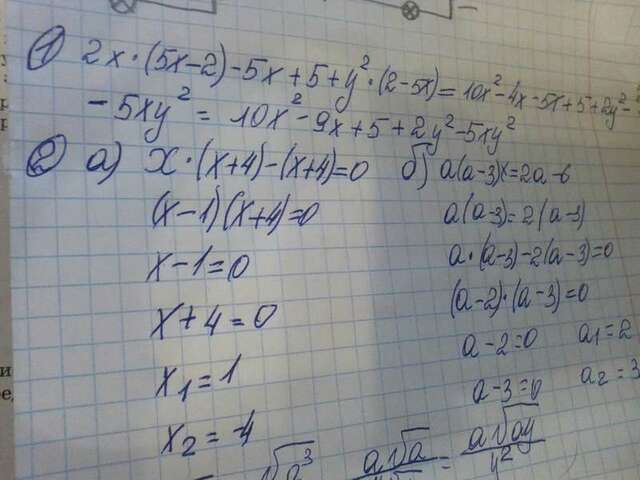 1) 2x·(5x-2)-5x+5+y²·(2-5x)=10x²-4x-5x+5+2y²-
-5xy²=10x²-9x+5+2y²-5xy²
2) а) x·(x+4)-(x+4)=0
(x-1)(x+4)=0
x-1=0
x+4=0
x₁=1
x₂=-4
б) a(a-3)=2a-6
a(a-3)=2(a-3)
a·(a-3)-2(a-3)=0
(a-2)·(a-3)=0
a-2=0 a₁=2
a-3=0 a₂=3
√a³ a√a = a√ay/y²